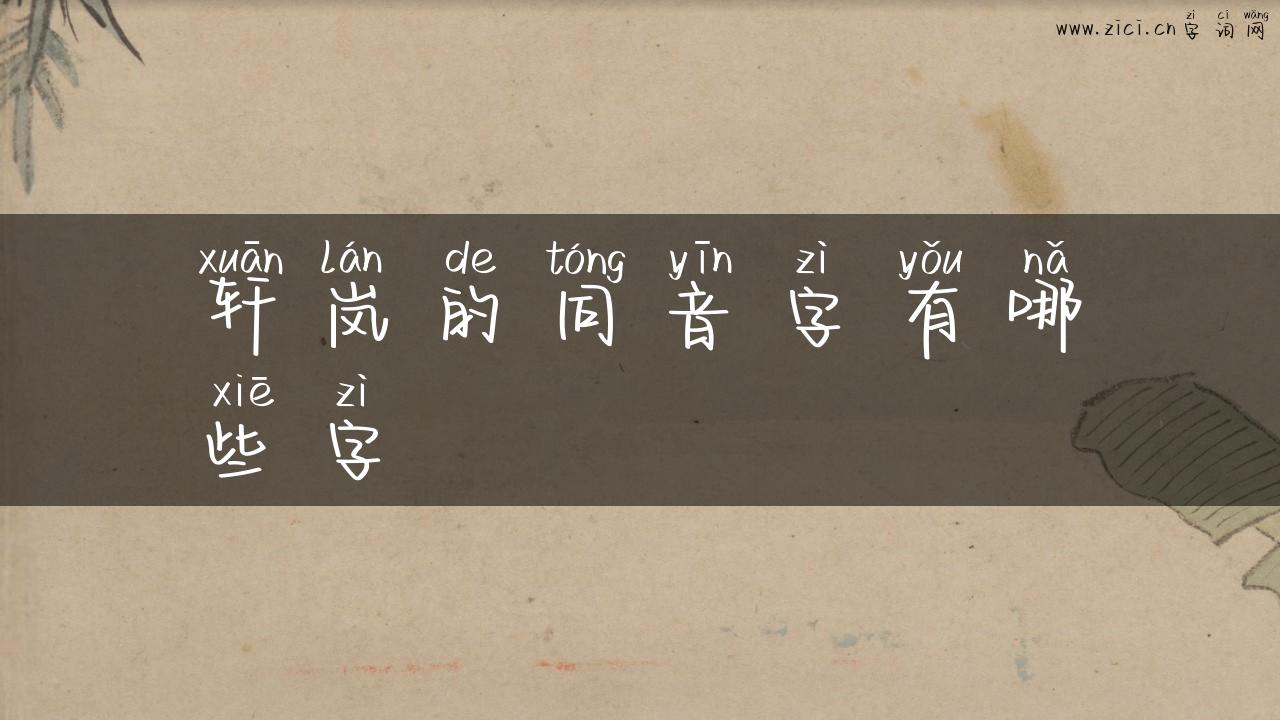 zì cí wǎng
www.zici.cn 字词网
xuān lán de tóng yīn zì yǒu nǎ
轩岚的同音字有哪
xiē zì
些字